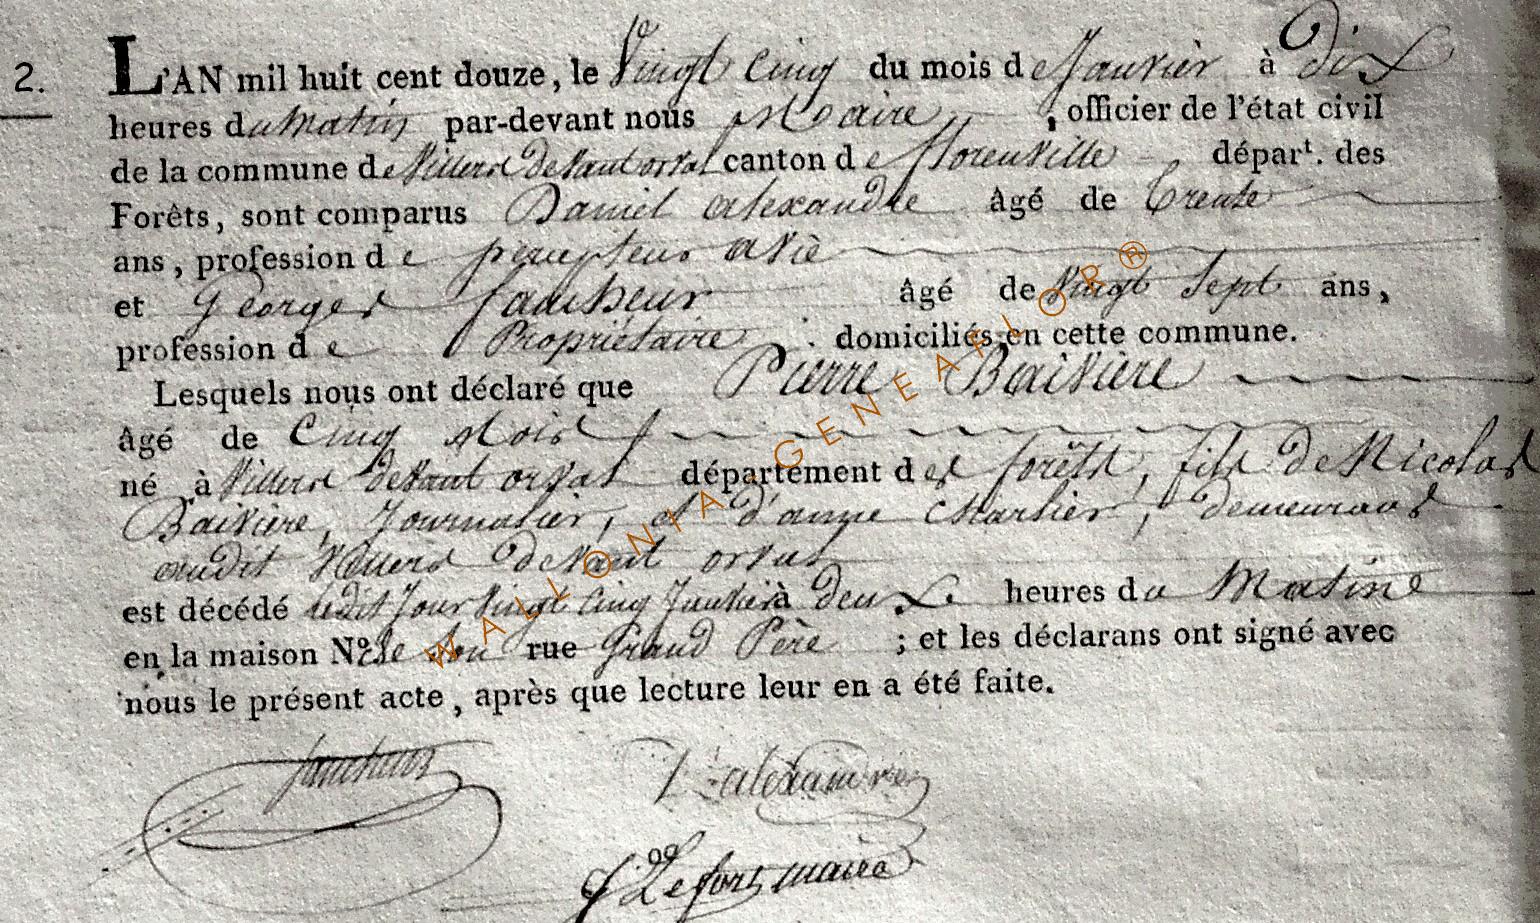 2.
L'AN mil huit cent douze, le Vingt Cinq du mois de Janvier à dix
heures du Matin par-devant nous Maire, officier de l'état civil
de la commune de Villers devant orval canton de florenville, dépar.t des
Forêts, sont comparus Daniel Alexandre âgé de trente
ans, profession de percepteur à vie
et Georges Fauiheur âgé de Vingt Sept ans,
profession de Propriétaire domiciliés en cette commune.
Lesquels nous ont déclaré que Pierre Baivière
âgé de Cinq Mois
né à Villers devant orval département des forêts, fils de Nicolas
Baivière, Journalier, et d'anne Charlier, demeurans
audit Villers devant orval
est décédé ledit Jour Vingt Cinq Janvier à deux heures du Matine
en la maison N.o de Son rue Grand Père ; et les déclarans ont signé avec
nous le présent acte, après que lecture leur en a été faite.
D alexandre
Lefort maire
WALLONIA - GENEAFLOR®